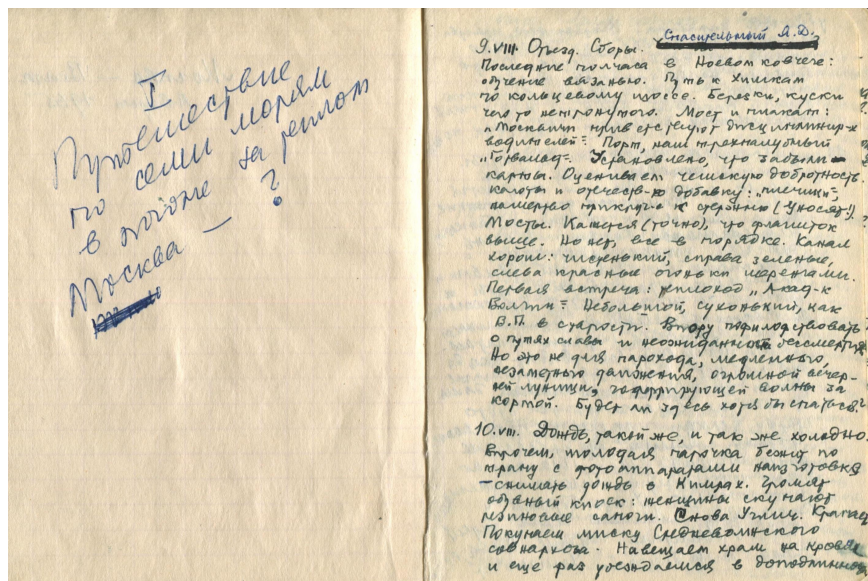 I
Путешествие
по семи морям
в погоне за теплом
Москва — ?
Спасительный А.Д.
9.VIII. Отъезд. Сборы.
Последние полчаса в Ноевом ковчеге:
обучение вязанью. Путь к Химкам
по кольцевому шоссе. Березки, куски
чего-то нетронутого. Мост и плакат:
„Москвичи приветствуют дисциплинир-х
водителей". Порт, наш трехпалубный
„Готвальд". Установлено, что забыли
карты. Оцениваем чешскую добротность
каюты и отечеств-ю добавку: „плечики",
намертво прикруч-е к стержню (Уносят!)
Мосты. Кажется (точно), что флагшток
выше. Но нет, все в порядке. Канал
хорош: чистенький, справа зеленые,
слева красные огоньки шеренгами.
Первая встреча: теплоход „Акад-к
Волгин". Небольшой, сухонький, как
В.П. в старости. Впору пофилософствовать
о путях славы и неожиданном бессмертии
Но это не для парохода, медленного,
незаметного движения, огромной вечер-
ней лунищи, гофрирующей волны за
кормой. Будет ли здесь хотя бы спаться?
10.VIII. Дождь, такой же, и так же холодно.
Впрочем, молодая парочка бежит по
трапу с фотоаппаратами наизготовке
– снимать дождь в Кимрах. Громят
обувный киоск: женщины скупают
резиновые сапоги. Снова Углич.
Покупаем миску Средневолжского
совнархоза. Навещаем храм на крови
и еще раз убеждаемся в